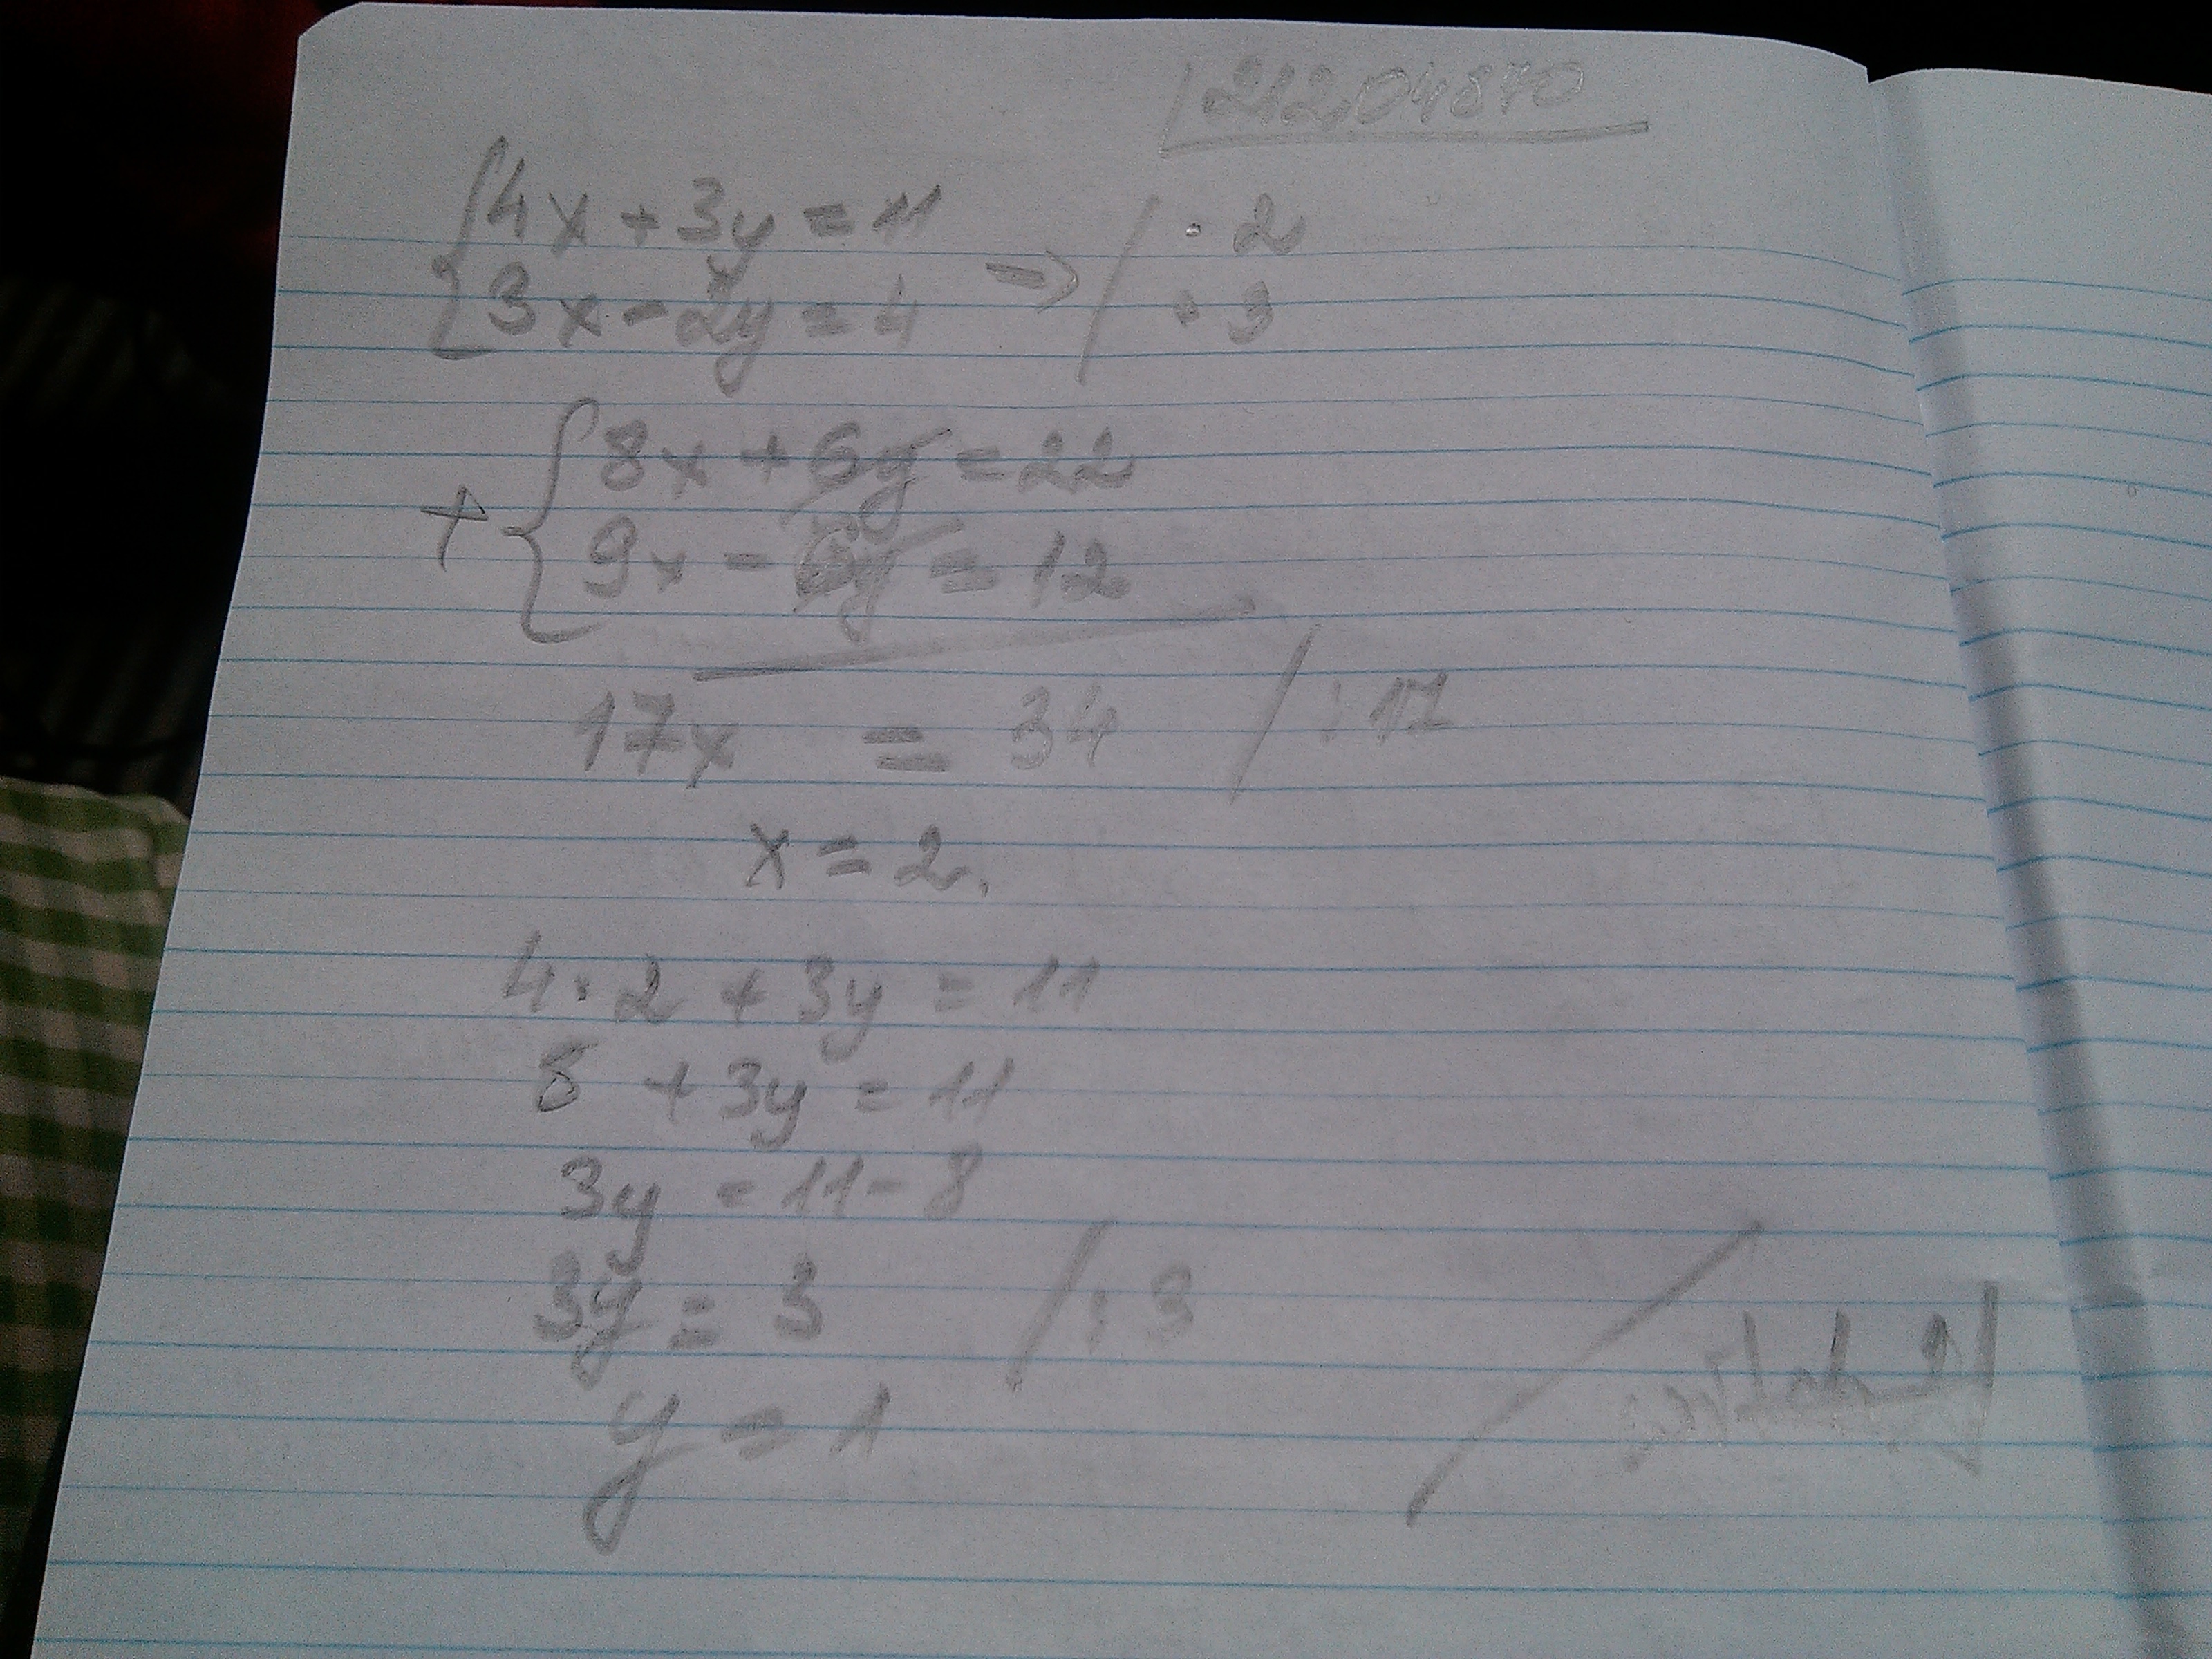 21204870
4x + 3y = 11 => / · 2
3x - 2y = 4 / · 3
+ 8x + 6y = 22
9x - 6y = 12
17x = 34 / : 17
x = 2.
4 · 2 + 3y = 11
8 + 3y = 11
3y = 11 - 8
3y = 3 / : 3
y = 1